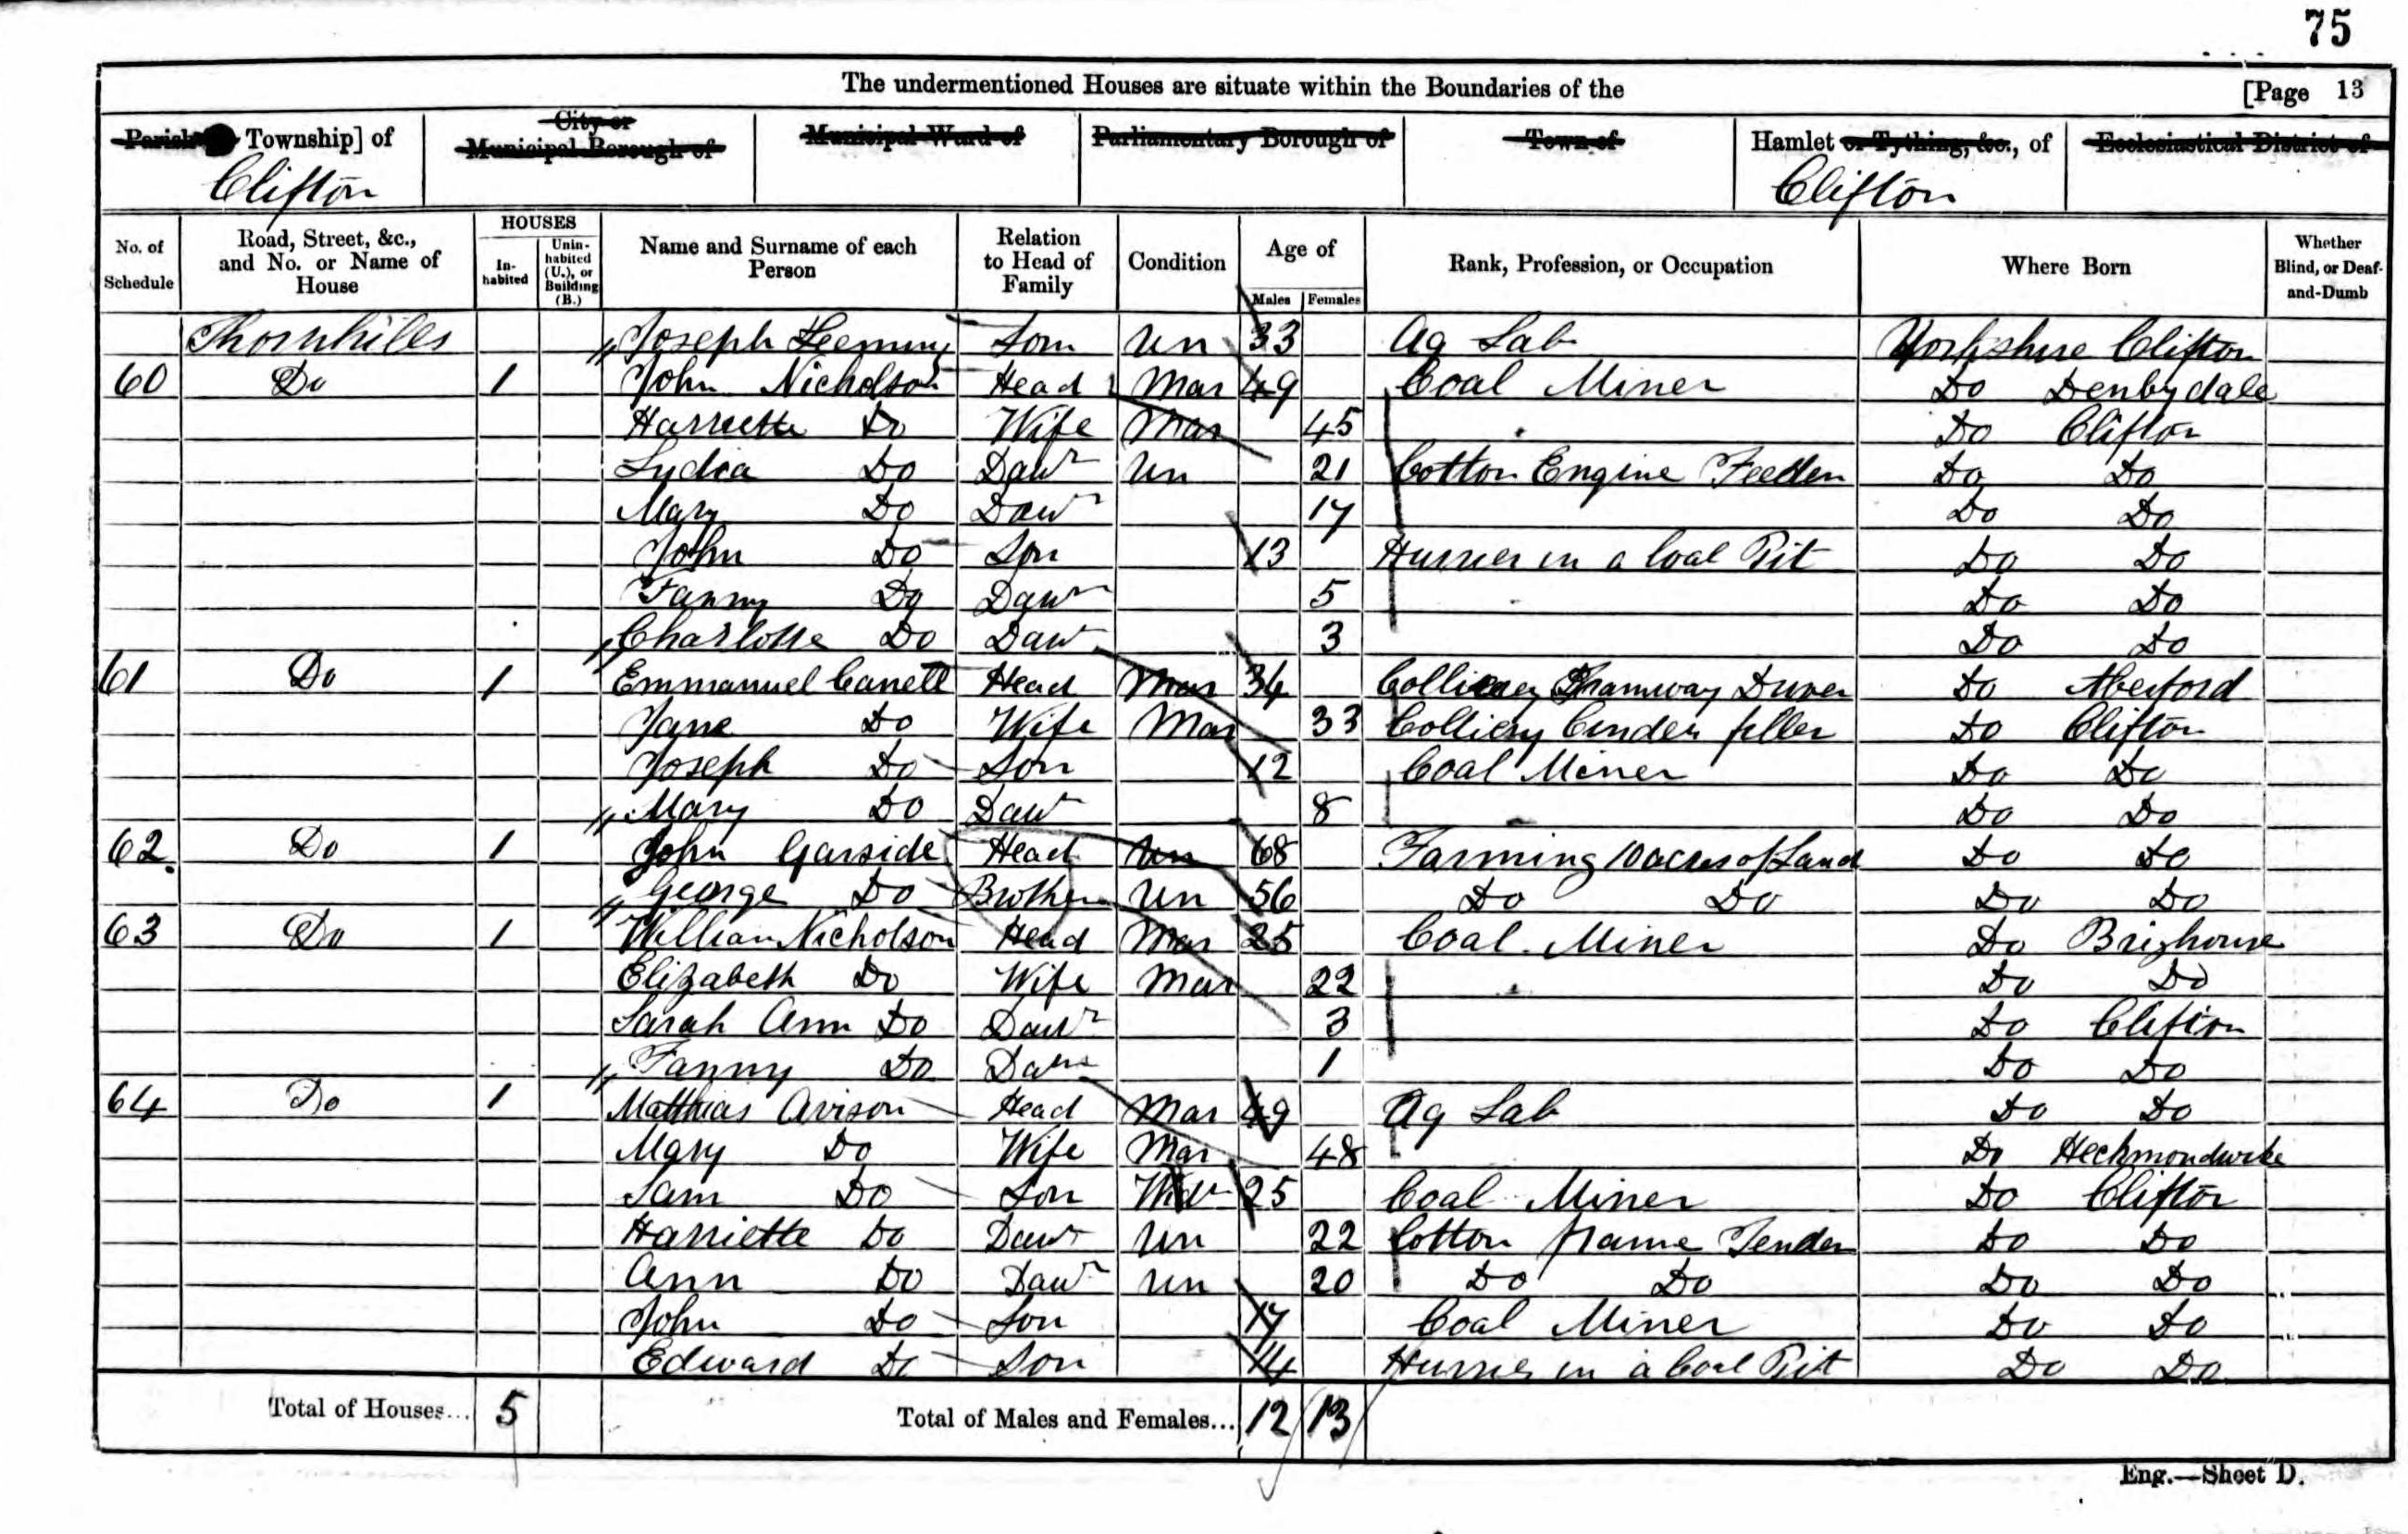 75
The undermentioned Houses are situate within the Boundaries of the [Page 13
Parish Township] of City or Municipal Borough of Municipal Ward of Parliamentary Borough of Town of Hamlet or Tything, &c., of Ecclesiastical District of
Clifton Clifton
No. of Schedule Road, Street, &c., and No. or Name of House HOUSES In-habited Unin-habited (U.), or Building (B.) Name and Surname of each Person Relation to Head of Family Condition Age of Males Females Rank, Profession, or Occupation Where Born Whether Blind, or Deaf-and-Dumb
Thornhiles Joseph Son Un 33 Ag Lab Yorkshire Clifton
60 Do 1 John Nicholson Head Mar 49 Coal Miner Do Denbydale
Harriette Do Wife Mar 45 Do Clifton
Lydia Do Dawr Un 21 Cotton Engine Feeder Do Do
Mary Do Dawr 17 Do Do
John Do Son 13 Hurrier in a Coal Pit Do Do
Fanny Do Dawr 5 Do Do
Charlotte Do Dawr 3 Do Do
61 Do 1 Emmanuel Head Mar 34 Colliery Tramway Driver Do Aberford
Jane Do Wife Mar 33 Colliery Cinder filler Do Clifton
Joseph Do Son 12 Coal Miner Do Do
Mary Do Dawr 8 Do Do
62 Do 1 John Garside Head Un 68 Farming 10 acres of Land Do Do
George Do Brother Un 56 Do Do Do Do
63 Do 1 William Nicholson Head Mar 25 Coal Miner Do Brighouse
Elizabeth Do Wife Mar 22 Do Do
Sarah Ann Do Dawr 3 Do Clifton
Fanny Do Dawr 1 Do Do
64 Do 1 Matthias Avison Head Mar 49 Ag Lab Do Do
Mary Do Wife Mar 48 Do Heckmondwike
Sam Do Son Widr 25 Coal Miner Do Clifton
Harriette Do Dawr Un 22 Cotton frame Tender Do Do
Ann Do Dawr Un 20 Do Do Do Do
John Do Son 17 Coal Miner Do Do
Edward Do Son 14 Hurrier in a Coal Pit Do Do
Total of Houses... 5 Total of Males and Females... 12 13
Eng.—Sheet D.